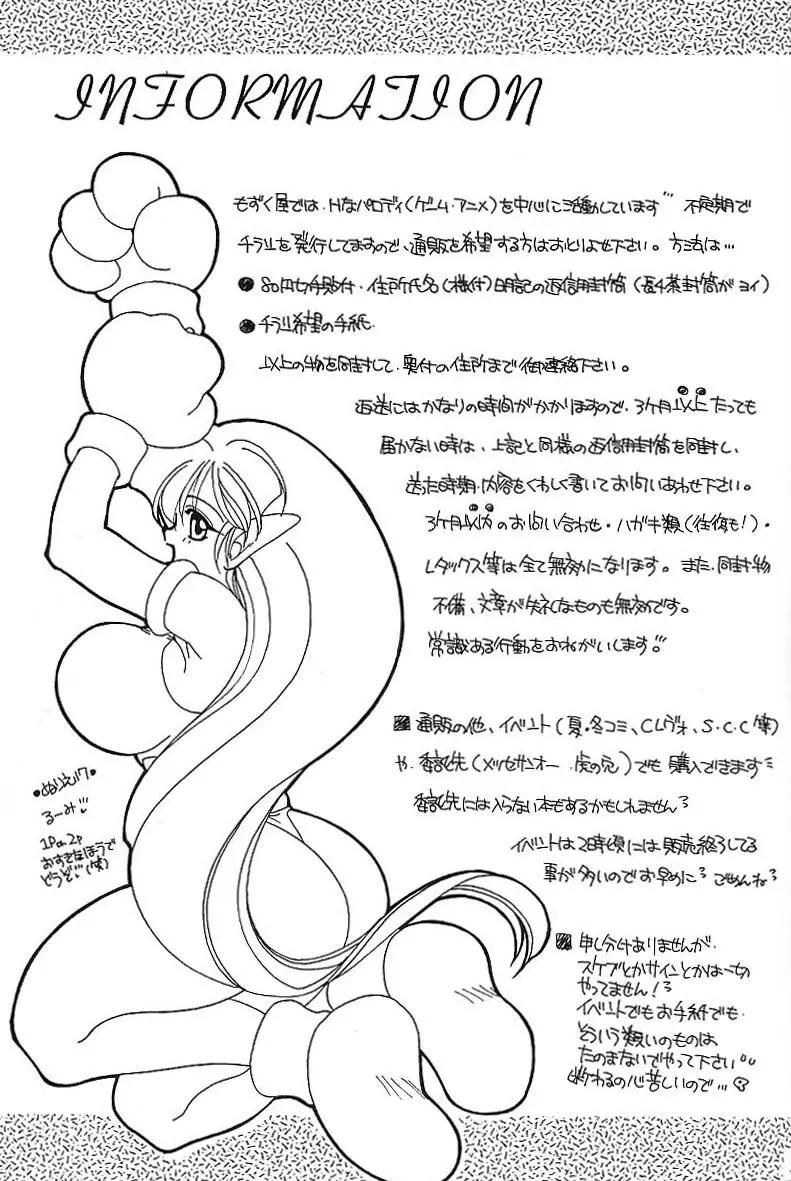 INFORMATION
もずく屋では、Hなパロディ(ゲーム・アニメ)を中心に活動しています 不定期で
チラシを発行してますので、通販を希望する方はおとりよせ下さい。方法は…
●80円切手貼付・住所氏名(様付)明記の返信用封筒(長4茶封筒がヨイ)
●チラシ希望の手紙.
以上の物を同封して、奥付の住所まで御連絡下さい。
返送にはかなりの時間がかかりますので、3ヶ月以上たっても
届かない時は、上記と同様の返信用封筒を同封し、
送た時期・内容をくわしく書いてお問いあわせ下さい。
3ヶ月以内のお問い合わせ・ハガキ類(往復も!)・
Lタックス等は全て無効になります。また、同封物
不備、文章が失礼なものも無効です。
常識ある行動をおねがいします!!
■通販の他、イベント(夏・冬コミ、Cレヴォ、S.C.C等)
や、委託先(メッセサンオー、虎の穴)でも購入できます
委託先には入らない本もあるかもしれません?
イベントは2時頃には販売終了してる
事が多いのでお早めに? ごめんね?
•ぬりえ17•
るーみぃ
1P or 2P
おすきなほうで
どうぞ!(笑)
■申し分けありませんが、
スケブとかサインとかは一切
やってません!?
イベントでもお手紙でも、
そういう類いのものは
たのまないでやって下さい
ことわるの心苦しいので…